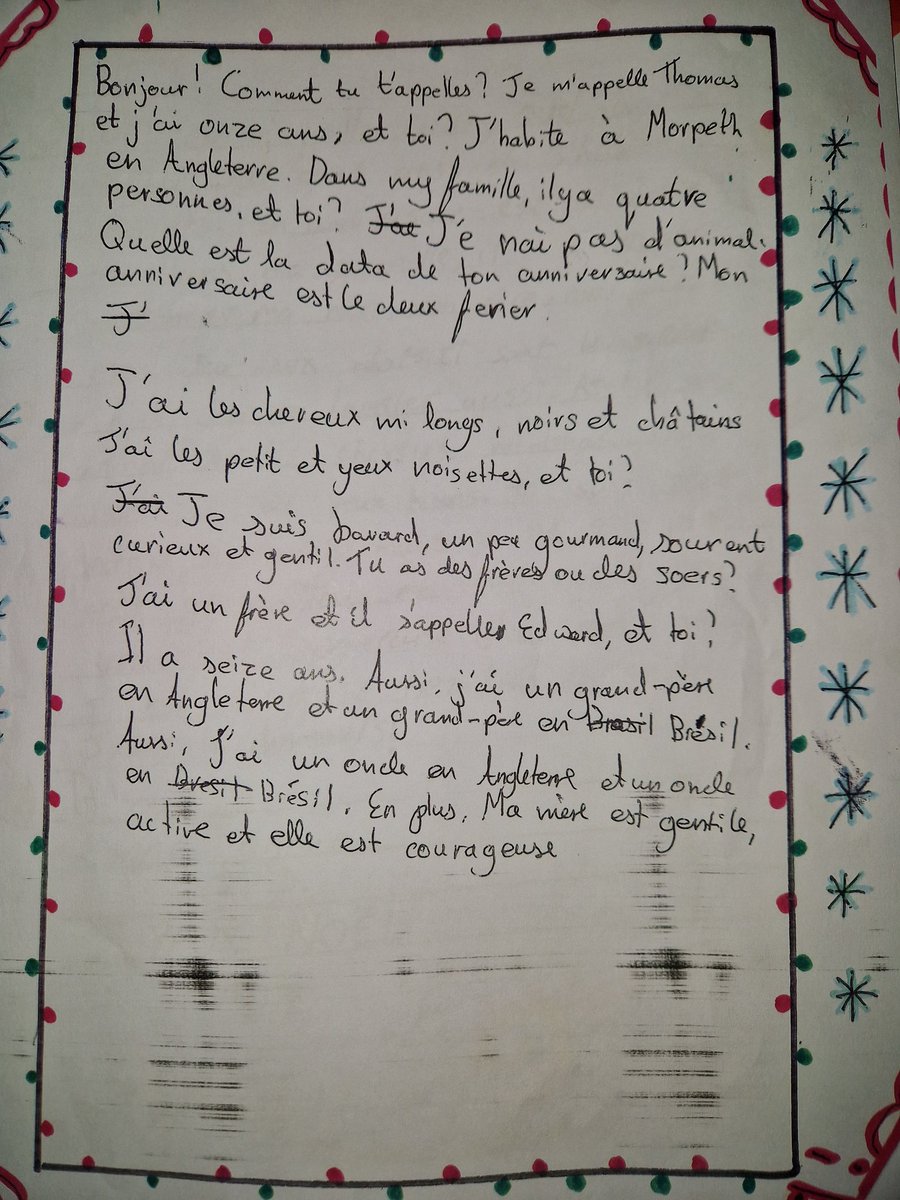 Bonjour! Comment tu t'appelles? Je m'appelle Thomas
et j'ai onze ans, et toi? J'habite à Morpeth
en Angleterre. Dans my famille, il y a quatre
personnes, et toi? J'ai J'e nai pas d'animal.
Quelle est la data de ton anniversaire? Mon
anniversaire est le deux ferier.
J'
J'ai les cheveux mi longs, noirs et châtains
J'ai les petit et yeux noisettes, et toi?
J'ai Je suis bavard, un peu gourmand, sourent
curieux et gentil. Tu as des frères ou des soers?
J'ai un frère et il s'appeller Edward, et toi?
Il a seize ans. Aussi, j'ai un grand-père
en Angleterre et un grand-père en Brasil Brésil.
Aussi, J'ai un oncle en Angleterre et un oncle
en Bresil Brésil. En plus, Ma mère est gentile,
active et elle est courageuse